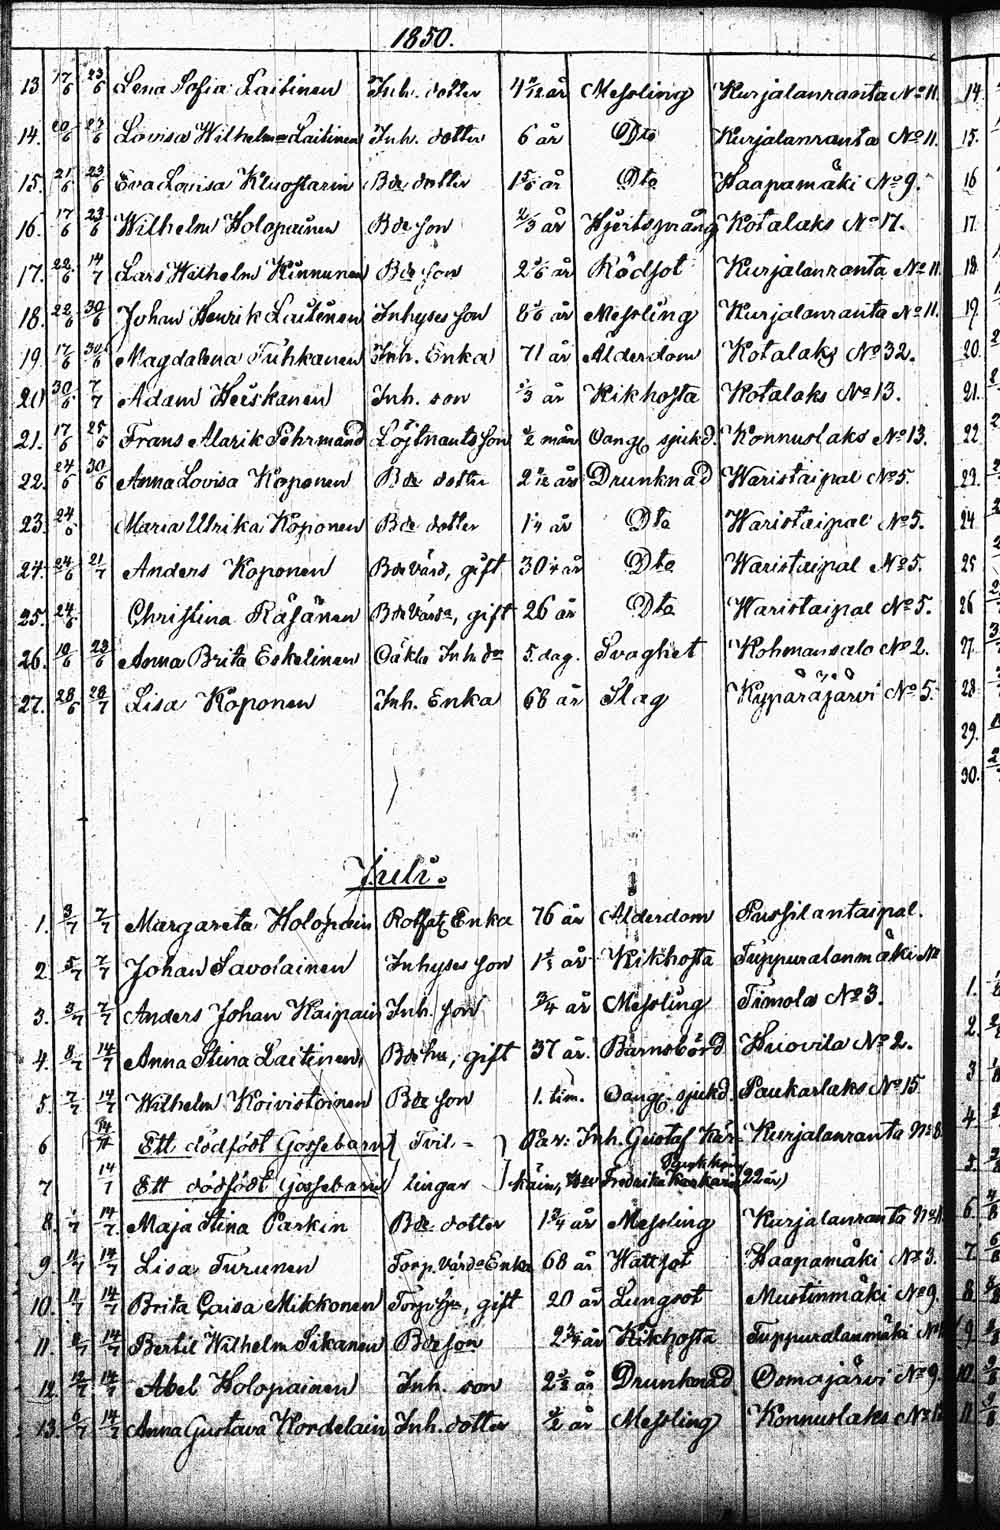 1850.
13 17/6 23/6 Lena Sofia Laitinen Inh. dotter 4 år Messling Kurjalanranta No 11.
14. 20/6 23/6 Lovisa Wilhelmina Laitinen Inh. dotter 6 år Dto Kurjalanranta No 11.
15. 21/6 23/6 Eva Lovisa Kluostarin Bde dotter 1 5/6 år Dto Haapamäki No 9.
16. 17/6 23/6 Wilhelm Holopainen Bde son 2/3 år Hjertsprång Kotalaks No 17.
17. 22/6 14/7 Lars Wilhelm Kinnunen Bde son 2 5/6 år Rödsot Kurjalanranta No 11.
18. 22/6 30/6 Johan Henrik Laitinen Inhyses son 8 år Messling Kurjalanranta No 11.
19. 17/6 30/6 Magdalena Tuhkanen Inh. Enka 71 år Ålderdom Kotalaks No 32.
20 30/6 7/7 Adam Heiskanen Inh. son 1/3 år Kikhosta Kotalaks No 13.
21. 17/6 25/6 Frans Alarik Fehrmand Löjtnants son 1/2 mån Oang. sjukd. Konnuslaks No 13.
22. 24/6 30/6 Anna Lovisa Koponen Bde dotter 2 år Drunknad Waristaipal No 5.
23. 24/6 Maria Ulrika Koponen Bde dotter 1 1/4 år Dto Waristaipal No 5.
24. 24/6 21/7 Anders Koponen Bde värd, gift 30 1/4 år Dto Waristaipal No 5.
25. 24/6 Christina Räsänen Bde Värda, gift 26 år Dto Waristaipal No 5.
26. 10/6 23/6 Anna Brita Eskelinen Oäkta Inh. dr 5. dag. Svaghet Kohmansalo No 2.
27. 28/6 28/7 Lisa Koponen Inh. Enka 68 år Slag Kypäräjärvi No 5.
Juli.
1. 3/7 7/7 Margareta Holopain Rotfat. Enka 76 år Ålderdom Pussilantaipal.
2. 5/7 7/7 Johan Savolainen Inhyses son 1 1/3 år Kikhosta Tuppuralanmäki No
3. 3/7 7/7 Anders Johan Kaipain Inh. son 3/4 år Messling Timola No 3.
4. 8/7 14/7 Anna Stina Laitinen Bde hu, gift 37 år. Barnsbörd Huovila No 2.
5. 7/7 14/7 Wilhelm Koivistoinen Bde son 1. tim. Oang. sjukd. Paukarlaks No 15
6 14/7 Ett dödfödt Gossebarn Tvil- Par: Inh. Gustaf Kär- Kurjalanranta No 8
7 14/7 Ett dödfödt Gossebarn lingar käin, Fredrika 22 år)
8. 14/7 Maja Stina Parkin Bde. dotter 1 3/4 år Messling Kurjalanranta No
9. 11/7 14/7 Lisa Turunen Torp. Värda Enka 68 år Wattsot Haapamäki No 3.
10. 11/7 14/7 Brita Caisa Mikkonen Torp, gift 20 år Lungsot Mustinmäki No 9.
11. 8/7 14/7 Bertil Wilhelm Sikanen Bde son 2 3/4 år Kikhosta Tuppuralanmäki No
12. 12/7 14/7 Abel Holopainen Inh. son 2 2/3 år Drunknad Osmajärvi No 9.
13. 6/7 14/7 Anna Gustava Kordelain Inh. dotter 1/2 år Messling Konnuslaks No
14.
15.
16
17.
18.
19.
20.
21.
22
23.
24.
25
26
27.
28.
29.
30.
1.
2.
3
4
5.
6.
7.
8
9.
10.
11